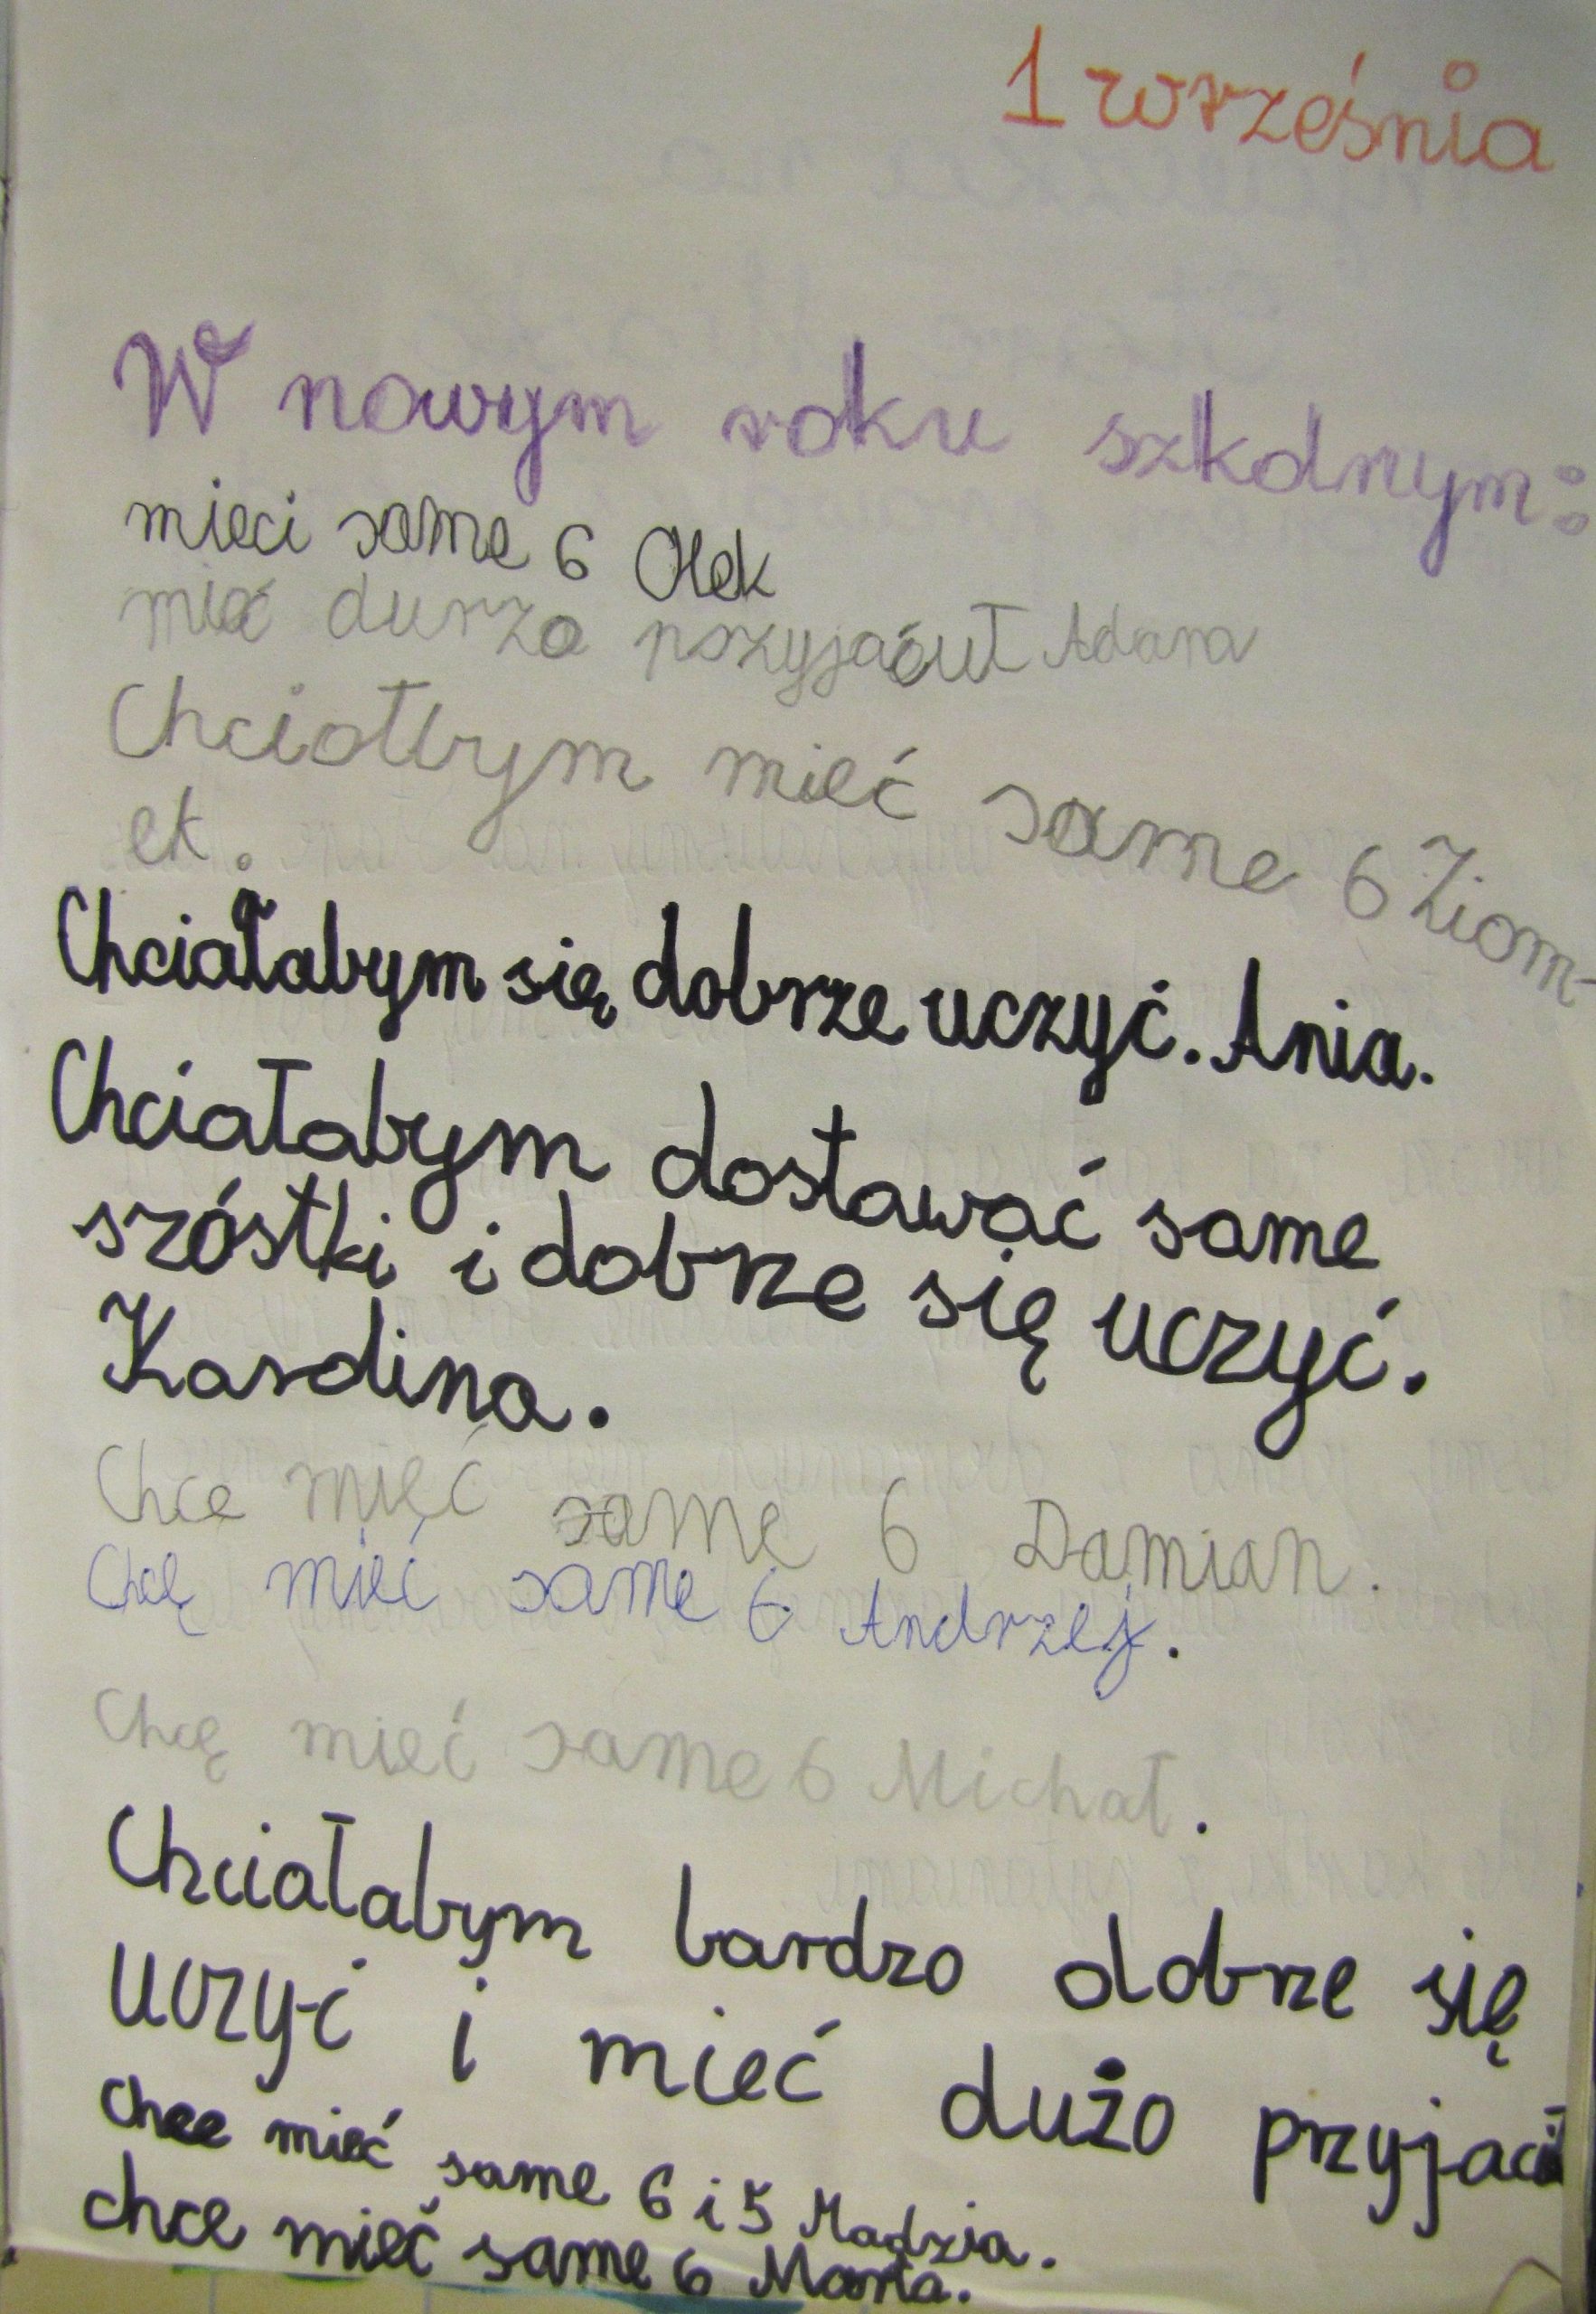 1 września
W nowym roku szkolnym:
mieci same 6 Olek
mieć durzo pszyjaciuł Adam
Chciołbym mieć same 6 Ziom-
ek.
Chciałabym się dobrze uczyć. Ania.
Chciałabym dostawać same
szóstki i dobrze się uczyć.
Karolina.
Chce mięć same 6 Damian.
Chcę mieć same 6 Andrzej.
Chcę mieć same 6 Michał.
Chciałabym bardzo dobrze się
uczyć i mieć dużo przyjaciół
chce mieć same 6 i 5 Madzia.
chce mieć same 6 Marta.